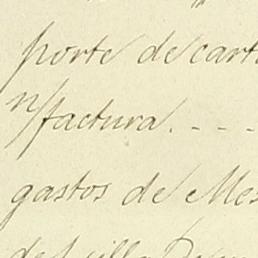 porte de cart
n/factura. - - -
gastos de Mes